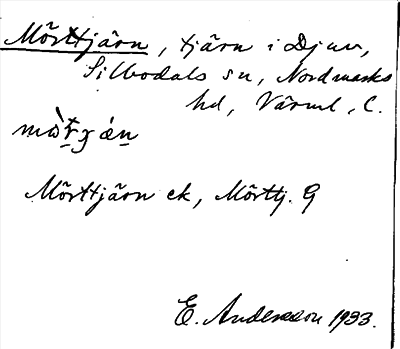 Mörttjärn, tjärn i Djuv,
Silbodals sn, Nordmarks
hd, Värml. l.
Mörttjärn ek, Mörttj. G
E. Andersson 1933.